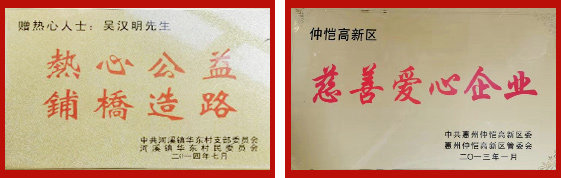 赠热心人士：吴汉明先生
熱心公益
鋪橋造路
中共河溪镇华东村支部委员会
河溪镇华东村民委员会
二〇一四年七月
仲恺高新区
慈善爱心企业
中共惠州仲恺高新区委
惠州仲恺高新区管委会
二〇一三年一月